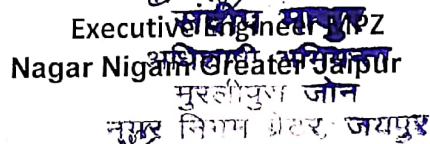 संदीप माथुर
Executive Engineer MPZ
अधिशाषी अभियन्ता
Nagar Nigam Greater Jaipur
मुरलीपुरा जोन
नगर निगम ग्रेटर, जयपुर